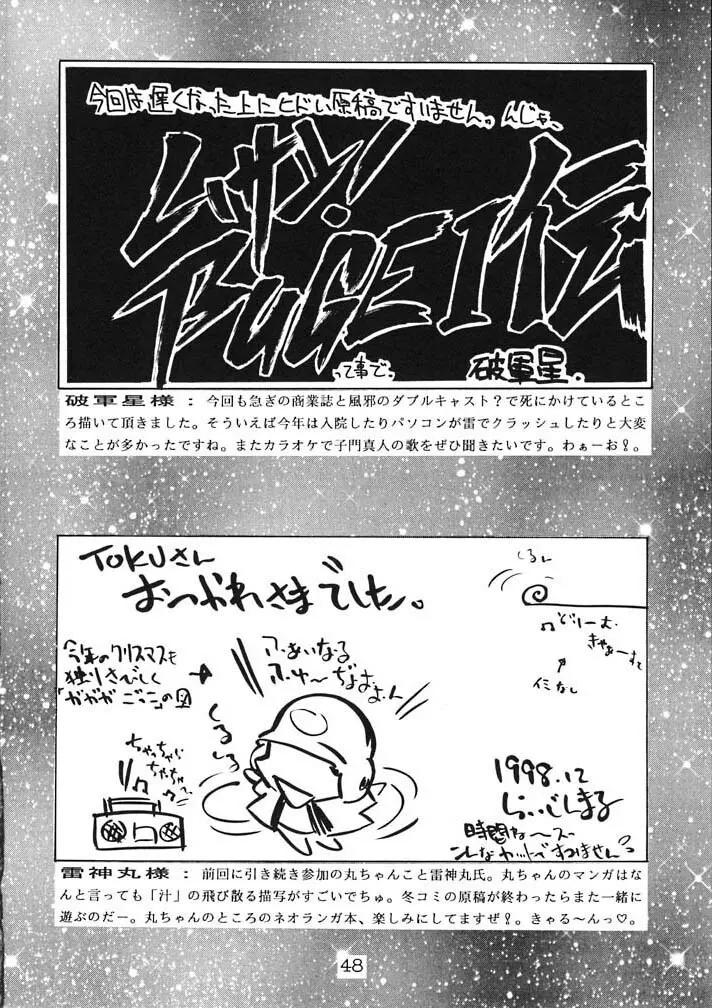 今回は遅くなった上にヒドい原稿ですいません。んじゃ、
ムサシ!
BUGEI伝
って事で。
破軍星.
破軍星様：今回も急ぎの商業誌と風邪のダブルキャスト？で死にかけているとこ
ろ描いて頂きました。そういえば今年は入院したりパソコンが雷でクラッシュしたりと大変
なことが多かったですね。またカラオケで子門真人の歌をぜひ聞きたいです。わぁーお！。
TOKUさん
おつかれさまでした。
今年のクリスマスも
独りさびしく
「ガガガごっこ」の図
ふぁいなる
ふゅ〜じょぉぉん
くるくる
ちゃっちゃら
ちゃっちゃ〜
くるん
♫どりーむ
きゃぁーすと
イミなし
1998.12
らいじんまる
時間ね〜ス〜
こんなカットですみません
雷神丸様：前回に引き続き参加の丸ちゃんこと雷神丸氏。丸ちゃんのマンガはな
んと言っても「汁」の飛び散る描写がすごいでちゅ。冬コミの原稿が終わったらまた一緒に
遊ぶのだー。丸ちゃんのところのネオランガ本、楽しみにしてますぜ！。きゃる〜んっ♡。
48